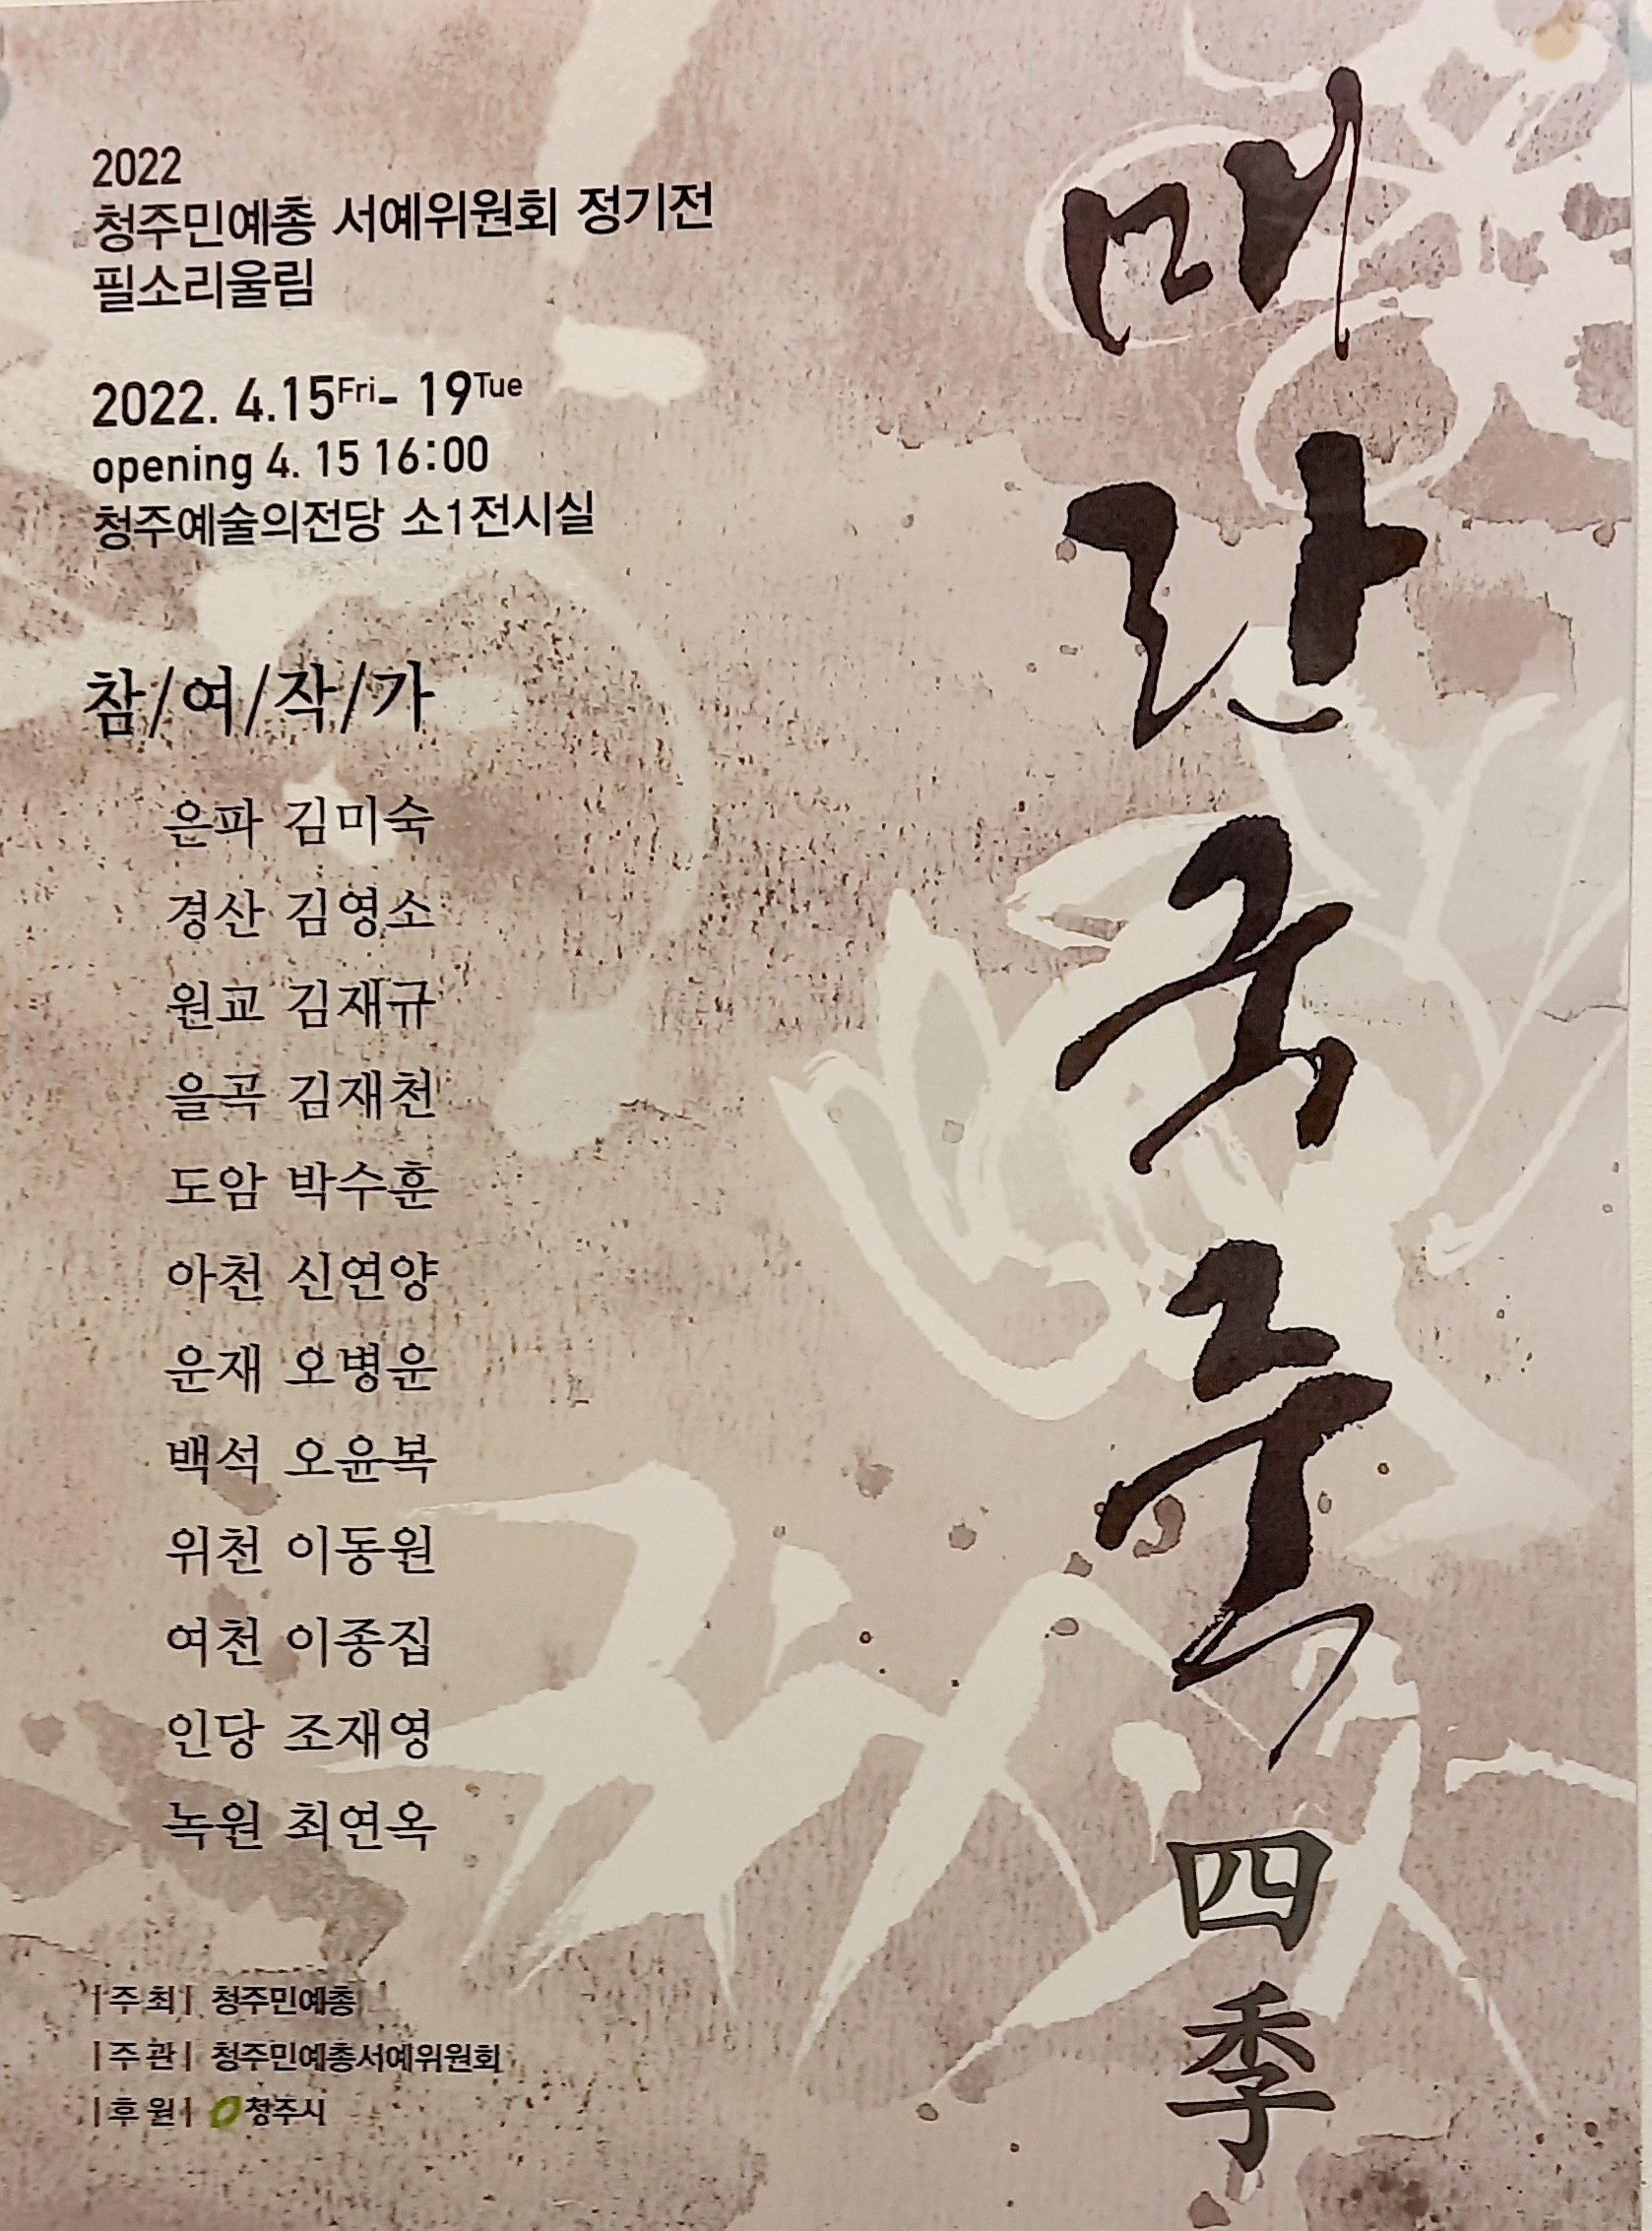 2022
청주민예총 서예위원회 정기전
필소리울림
2022. 4.15Fri- 19Tue
opening 4. 15 16:00
청주예술의전당 소1전시실
참/여/작/가
은파 김미숙
경산 김영소
원교 김재규
을곡 김재천
도암 박수훈
아천 신연양
운재 오병운
백석 오윤복
위천 이동원
여천 이종집
인당 조재영
녹원 최연옥
|주최| 청주민예총
|주관| 청주민예총서예위원회
|후원| 청주시
매란국죽 四季